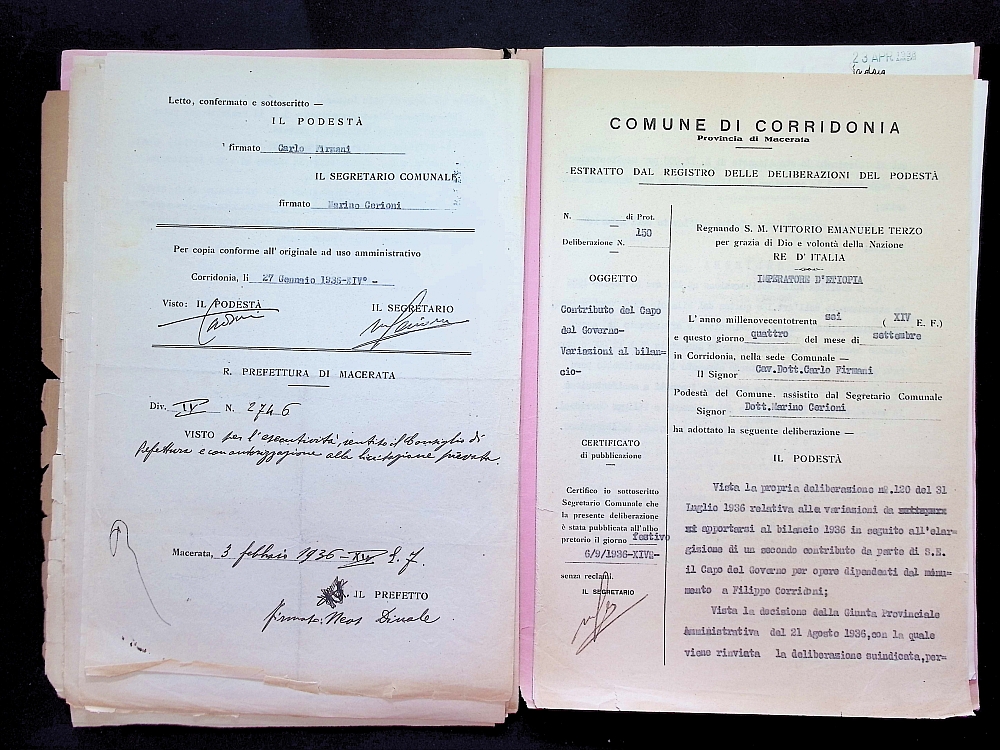 Letto, confermato e sottoscritto —
IL PODESTÀ
firmato Carlo Firmani
IL SEGRETARIO COMUNALE
firmato Marino Cerioni
Per copia conforme all' originale ad uso amministrativo
Corridonia, li 27 Gennaio 1936-XIV° -
Visto: IL PODESTÀ
IL SEGRETARIO
R. PREFETTURA DI MACERATA
Div. IV N. 2746
VISTO per l'esecutività, sentito il Consiglio di
Prefettura e con autorizzazione alla licitazione privata.
Macerata, 3 febbraio 1936-XIV E. F.
IL PREFETTO
firmato: Neos Dinale
23 APR 1938
COMUNE DI CORRIDONIA
Provincia di Macerata
ESTRATTO DAL REGISTRO DELLE DELIBERAZIONI DEL PODESTÀ
N. di Prot.
Deliberazione N. 150
OGGETTO
Contributo del Capo
del Governo-
Variazioni al bilan=
cio-
CERTIFICATO
di pubblicazione
Certifico io sottoscritto
Segretario Comunale che
la presente deliberazione
è stata pubblicata all'albo
pretorio il giorno festivo
6/9/1936-XIV=-
senza reclami.
IL SEGRETARIO
Regnando S. M. VITTORIO EMANUELE TERZO
per grazia di Dio e volontà della Nazione
RE D' ITALIA
IMPERATORE D'ETIOPIA
L' anno millenovecentotrenta sei ( XIV E. F.)
e questo giorno quattro del mese di settembre
in Corridonia, nella sede Comunale —
Il Signor Cav.Dott.Carlo Firmani
Podestà del Comune. assistito dal Segretario Comunale
Signor Dott.Marino Cerioni
ha adottato la seguente deliberazione —
IL PODESTÀ
Vista la propria deliberazione nº.120 del 31
Luglio 1936 relativa alle variazioni da
apportarsi al bilancio 1936 in seguito all'elar=
gisione di un secondo contributo da parte di S.E.
il Capo del Governo per opere dipendenti dal monu=
mento a Filippo Corridoni;
Vista la decisione della Giunta Provinciale
Amministrativa del 21 Agosto 1936,con la quale
viene rinviata la deliberazione suindicata,per=